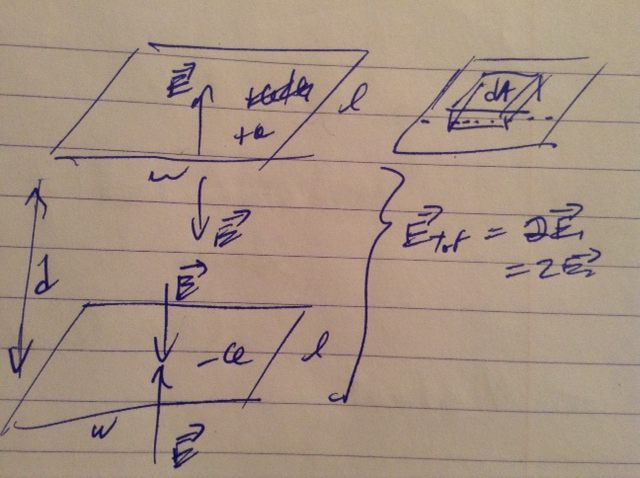 E⃗
+Q
l
w
dA
E⃗
d
E⃗tot = 2E⃗₁
= 2E⃗₂
E⃗
-Q
l
w
E⃗